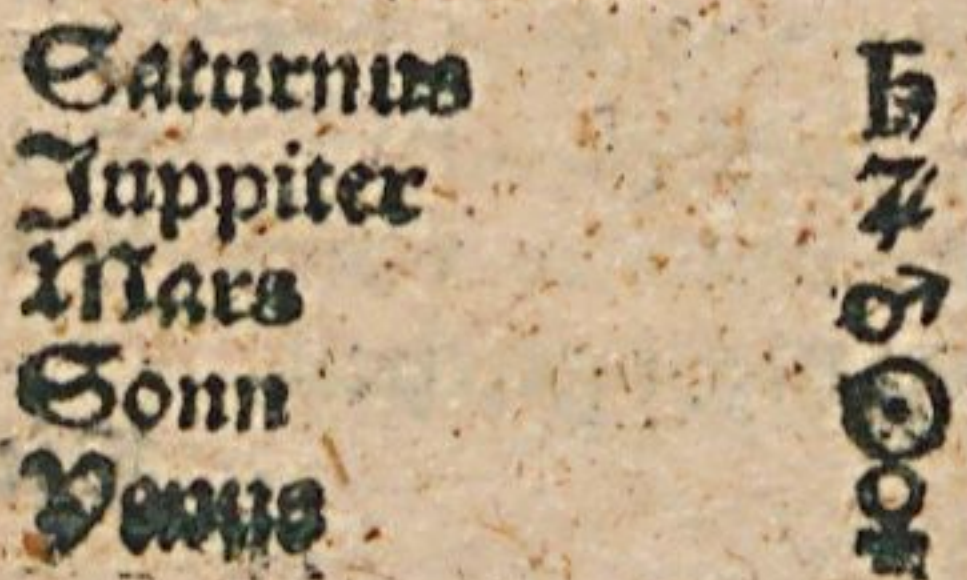 Saturnus ♄
Juppiter ♃
Mars ♂
Sonn ☉
Venus ♀